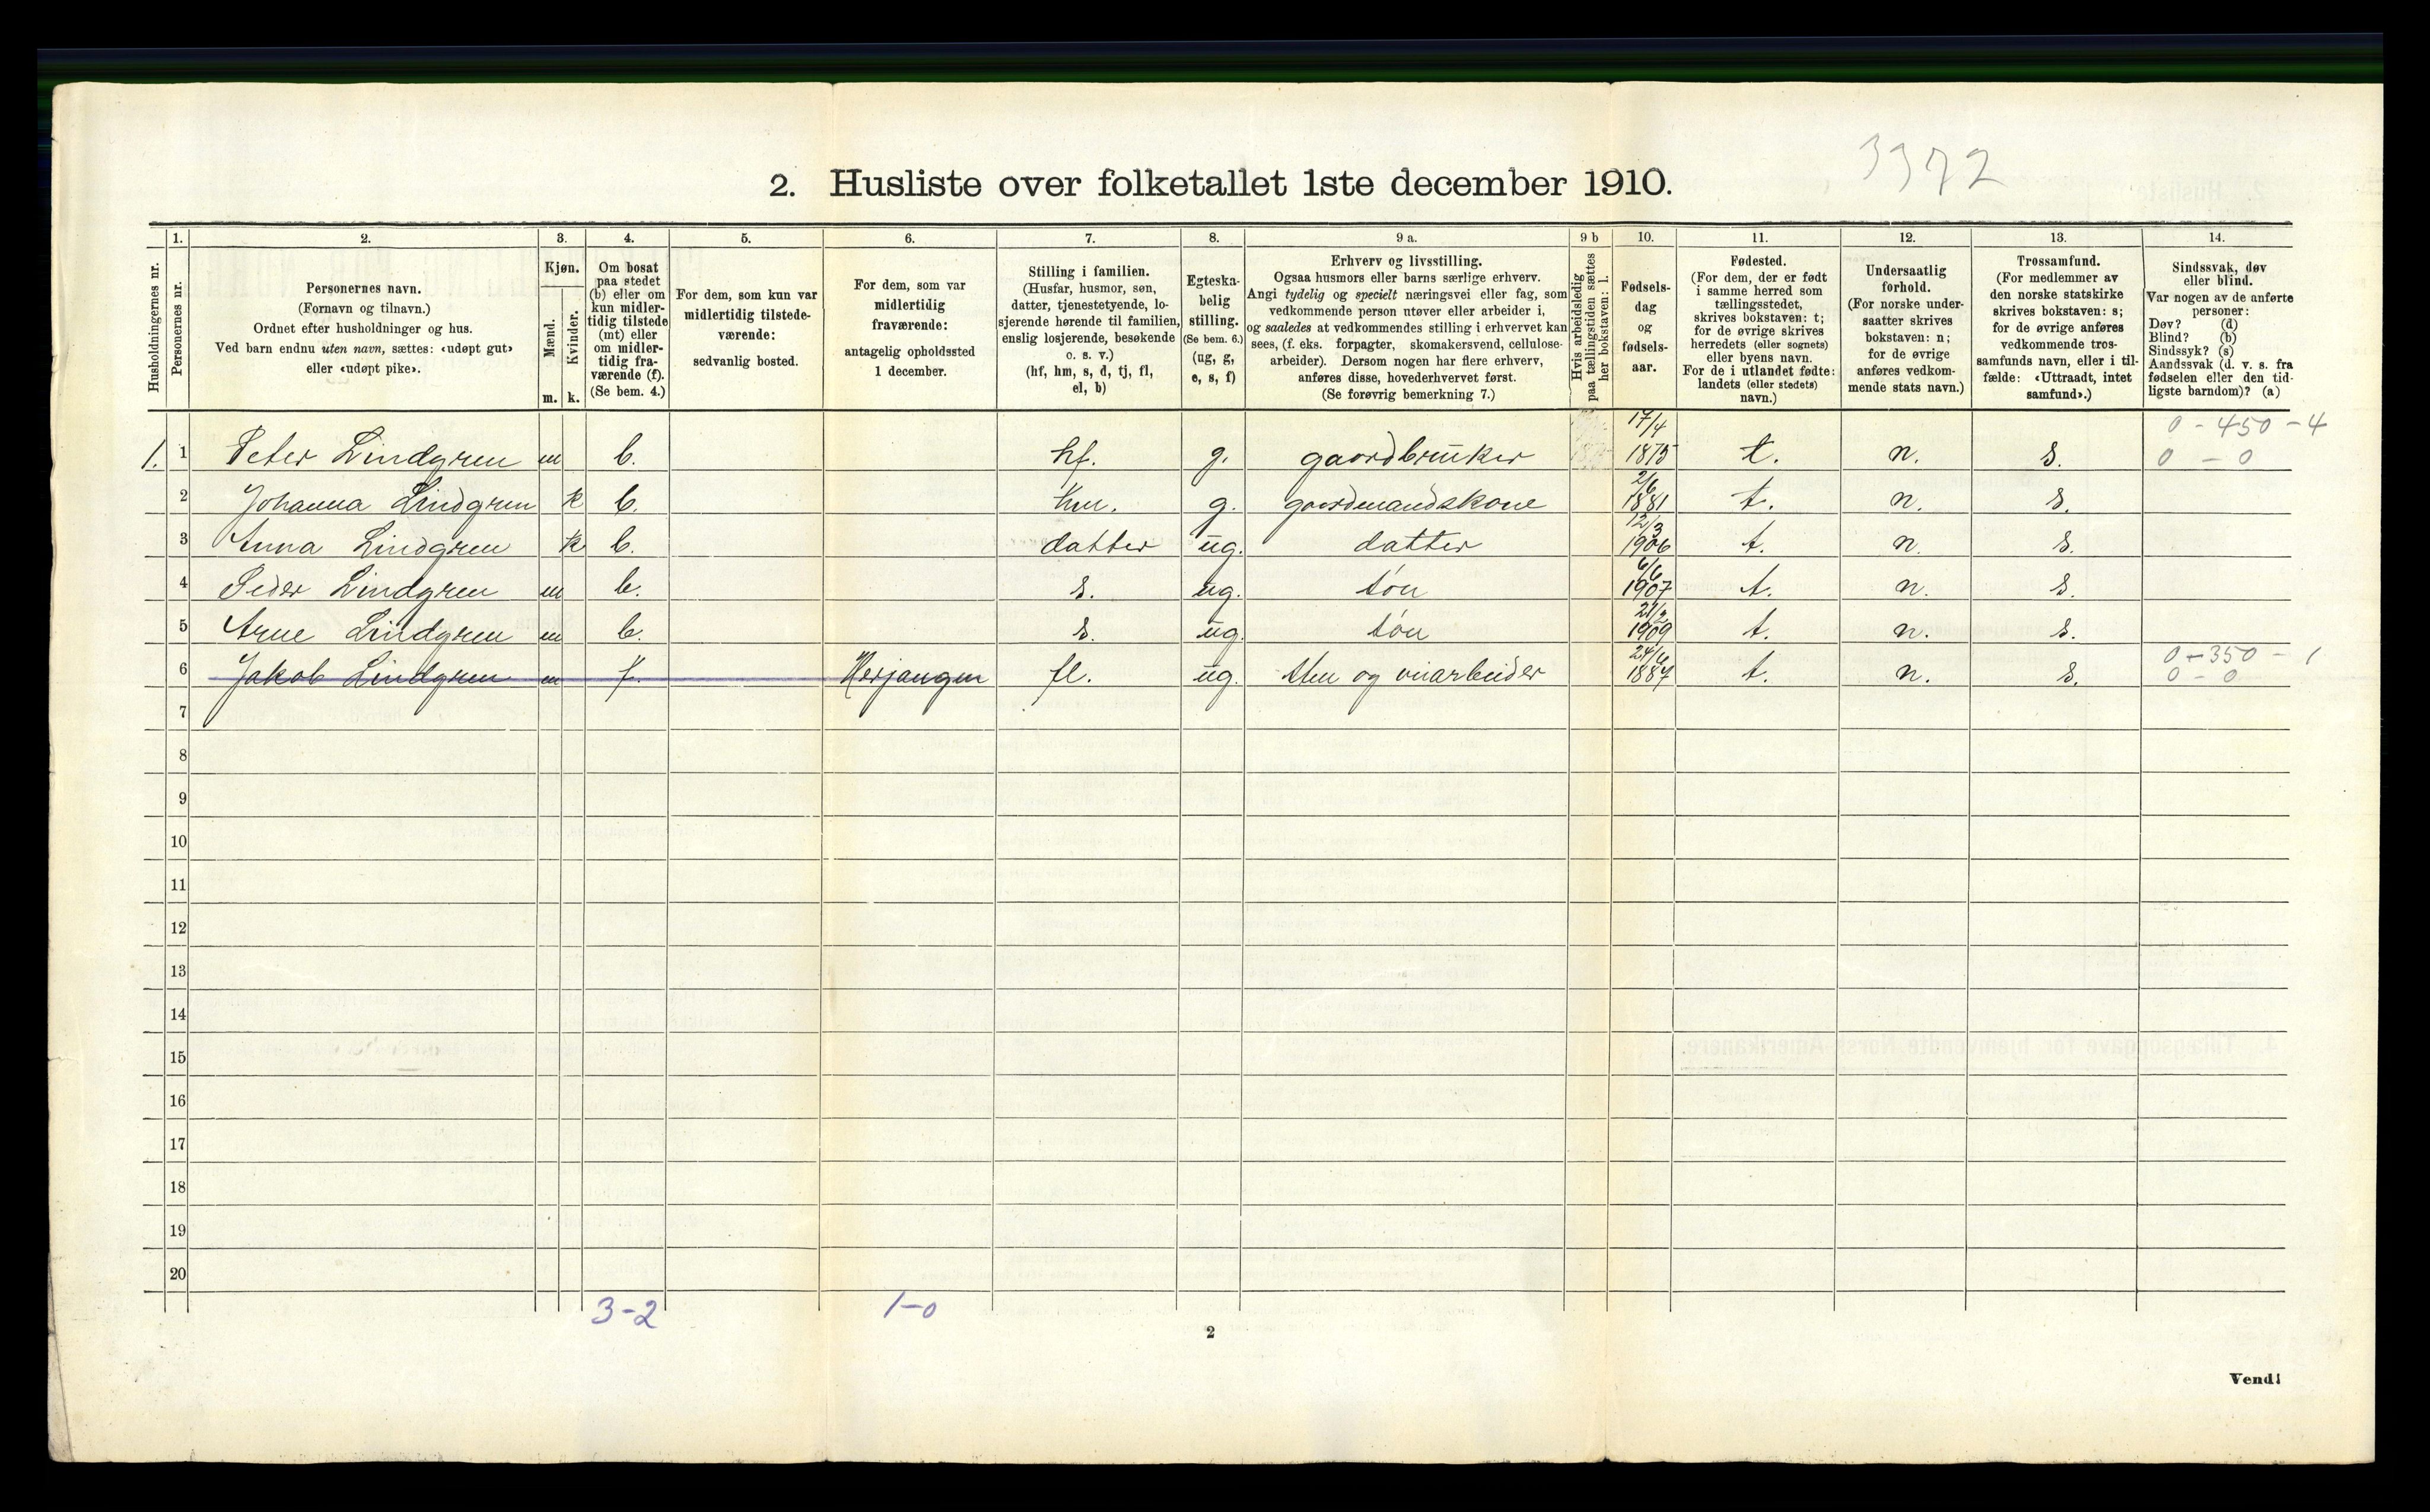 3372
2. Husliste over folketallet 1ste december 1910.
Husholdningernes nr.
1.
Personernes nr.
2.
Personernes navn.
(Fornavn og tilnavn.)
Ordnet efter husholdninger og hus.
Ved barn endnu uten navn, sættes: «udøpt gut»
eller «udøpt pike».
3.
Kjøn.
Mænd.
Kvinder.
m. k.
4.
Om bosat
paa stedet
(b) eller om
kun midler-
tidig tilstede
(mt) eller
om midler-
tidig fra-
værende (f).
(Se bem. 4.)
5.
For dem, som kun var
midlertidig tilstede-
værende:
sedvanlig bosted.
6.
For dem, som var
midlertidig
fraværende:
antagelig opholdssted
1 december.
7.
Stilling i familien.
(Husfar, husmor, søn,
datter, tjenestetyende, lo-
sjerende hørende til familien,
enslig losjerende, besøkende
o. s. v.)
(hf, hm, s, d, tj, fl,
el, b)
8.
Egteska-
belig
stilling.
(Se bem. 6.)
(ug, g,
e, s, f)
9 a.
Erhverv og livsstilling.
Ogsaa husmors eller barns særlige erhverv.
Angi tydelig og specielt næringsvei eller fag, som
vedkommende person utøver eller arbeider i,
og saaledes at vedkommendes stilling i erhvervet kan
sees, (f. eks. forpagter, skomakersvend, cellulose-
arbeider). Dersom nogen har flere erhverv,
anføres disse, hovederhvervet først.
(Se forøvrig bemerkning 7.)
9 b
Hvis arbeidsledig
paa tællingstiden sættes
her bokstaven: l.
10.
Fødsels-
dag
og
fødsels-
aar.
11.
Fødested.
(For dem, der er født
i samme herred som
tællingsstedet,
skrives bokstaven: t;
for de øvrige skrives
herredets (eller sognets)
eller byens navn.
For de i utlandet fødte:
landets (eller stedets)
navn.)
12.
Undersaatlig
forhold.
(For norske under-
saatter skrives
bokstaven: n;
for de øvrige
anføres vedkom-
mende stats navn.)
13.
Trossamfund.
(For medlemmer av
den norske statskirke
skrives bokstaven: s;
for de øvrige anføres
vedkommende tros-
samfunds navn, eller i til-
fælde: «Uttraadt, intet
samfund».)
14.
Sindssvak, døv
eller blind.
Var nogen av de anførte
personer:
Døv? (d)
Blind? (b)
Sindssyk? (s)
Aandssvak (d. v. s. fra
fødselen eller den tid-
ligste barndom)? (a)
17/4 0 - 450 - 4
1. 1 Peter Lindgren m b. hf. g. gaardbruker 1875 t. n. s. 0 - 0
2/6
2 Johanna Lindgren k b. hm. g. gaardmandskone 1881 t. n. s.
12/3
3 Anna Lindgren k b. datter ug. datter 1906 t. n. s.
6/6
4 Peder Lindgren m b. s. ug. søn 1907 t. n. s.
5 Arne Lindgren m b. s. ug. søn 1909 t. n. s.
0 - 350 - 1
6 Jakob Lindgren m f. Herjangen fl. ug. t. n. s. 0 - 0
7
8
9
10
11
12
13
14
15
16
17
18
19
20
3-2 1-0
2
Vend!